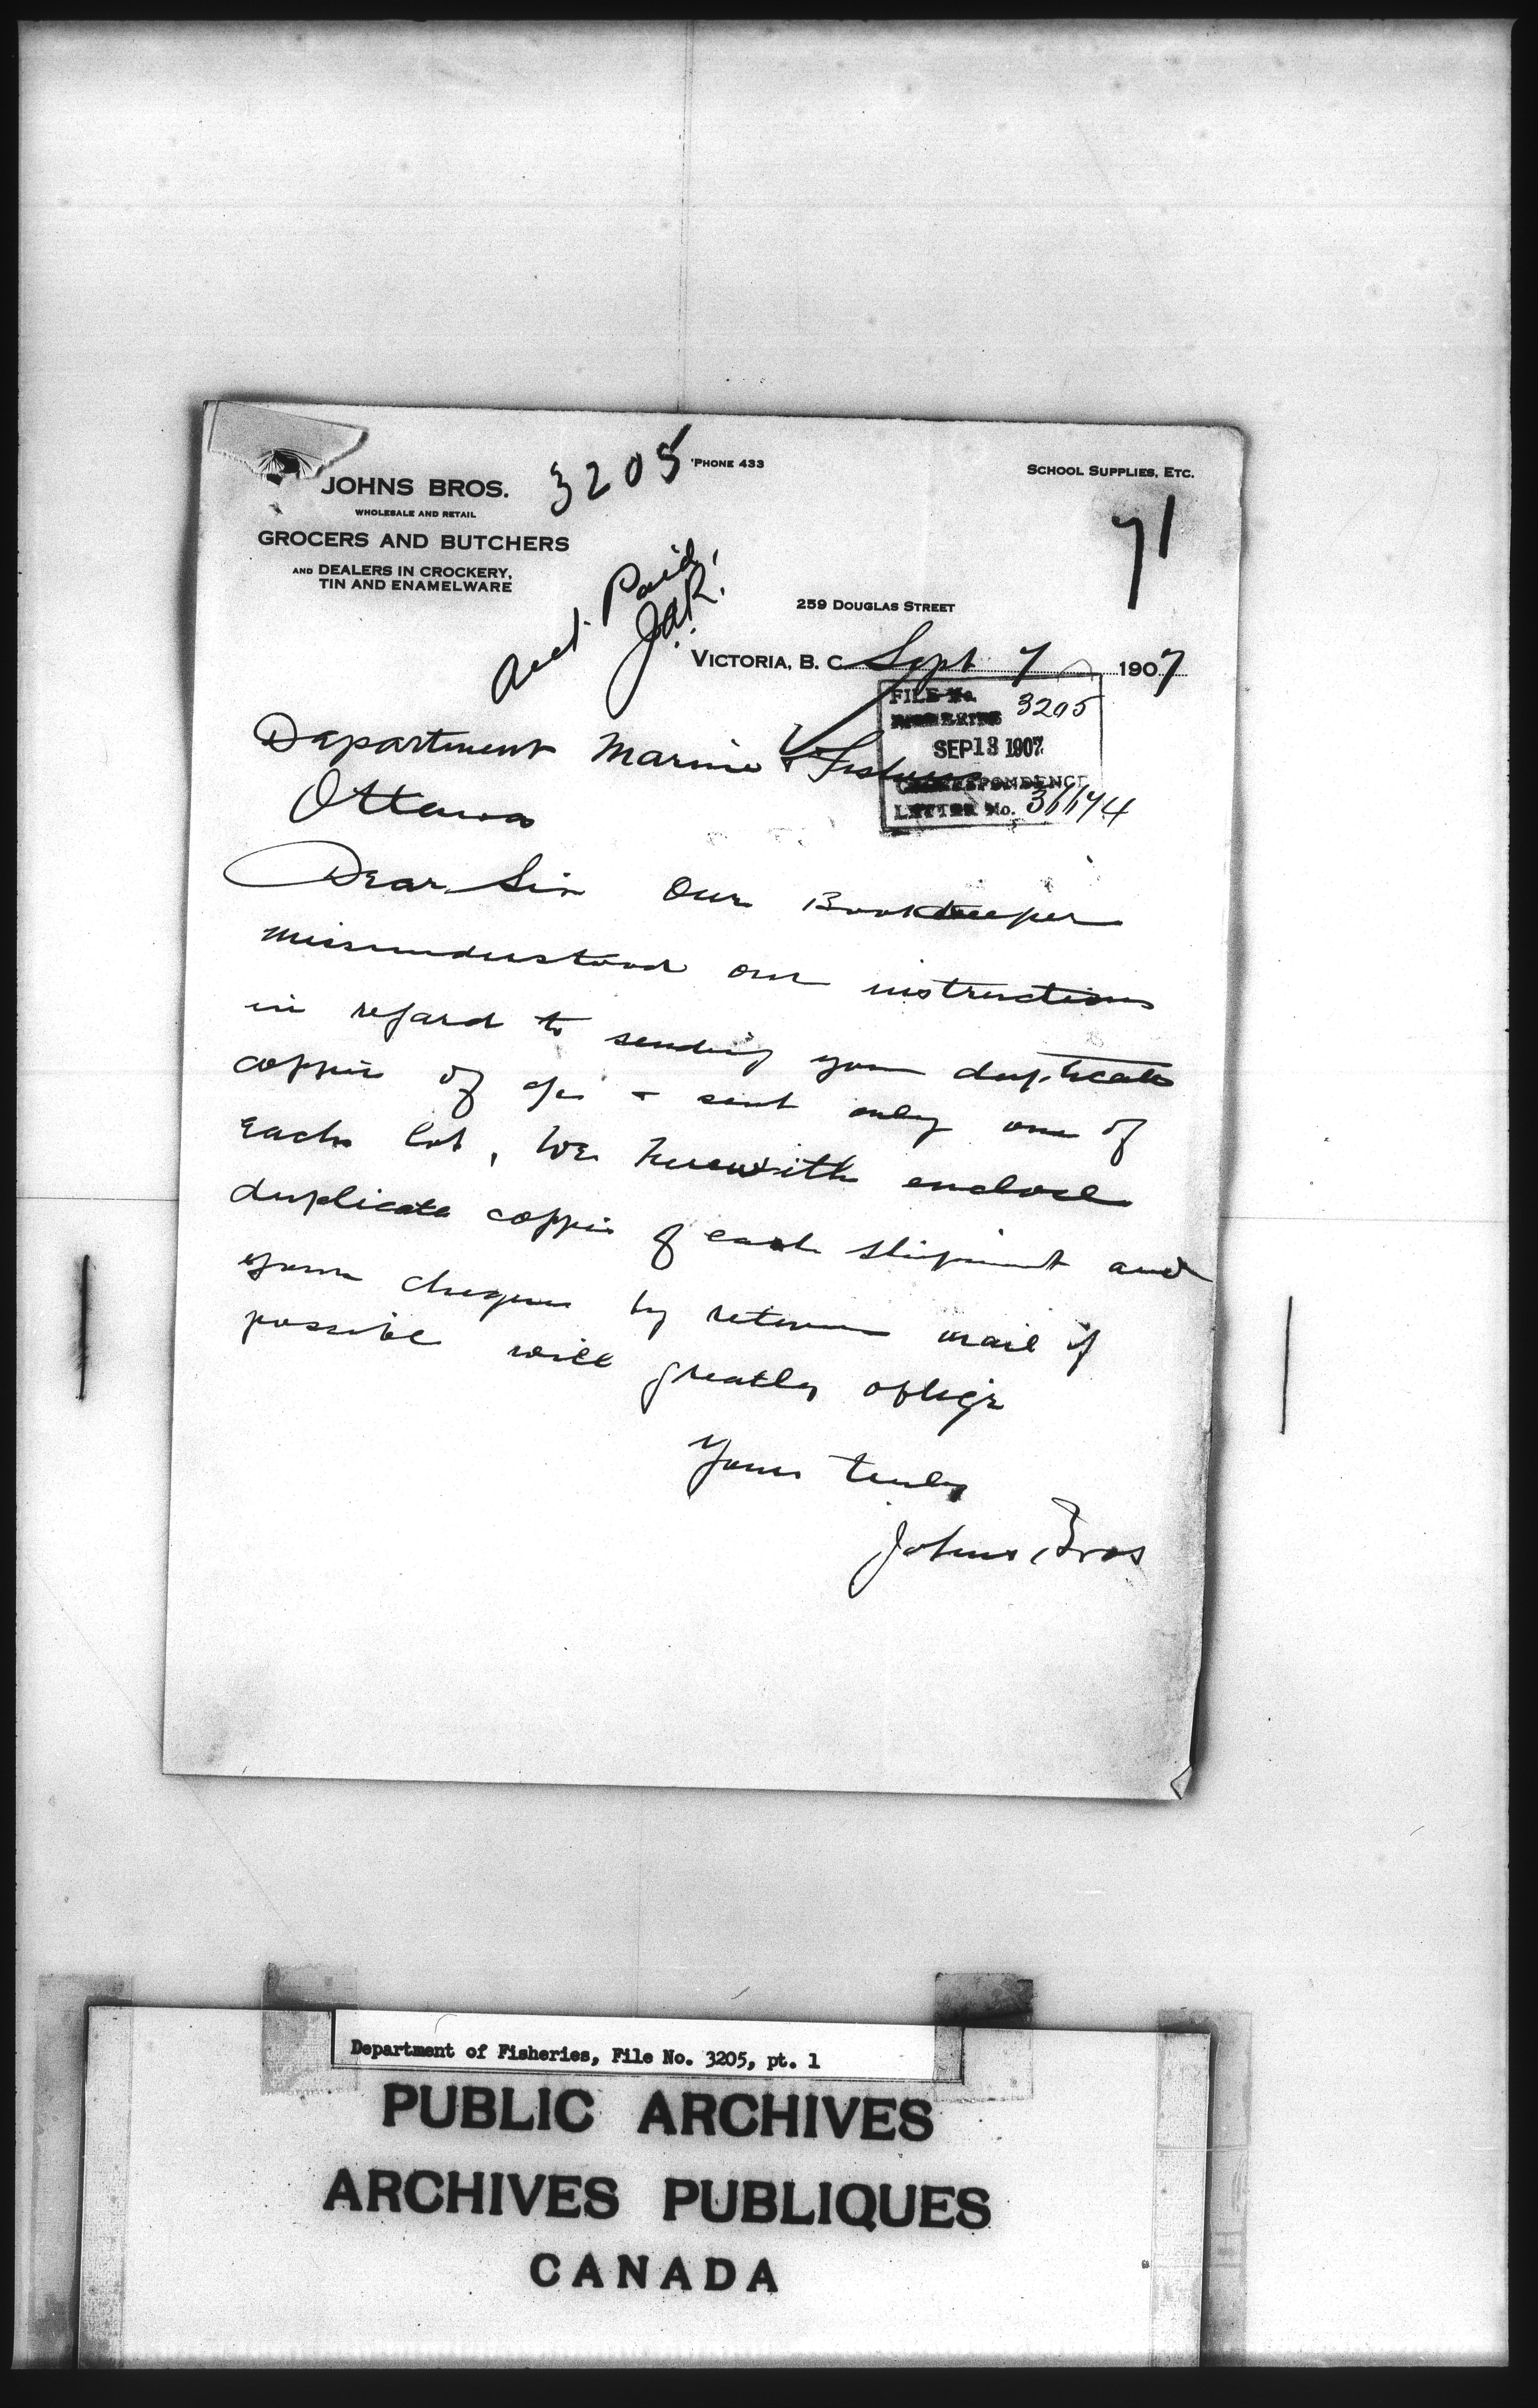 3205
'PHONE 433
SCHOOL SUPPLIES, ETC.
JOHNS BROS.
WHOLESALE AND RETAIL
GROCERS AND BUTCHERS
AND DEALERS IN CROCKERY,
TIN AND ENAMELWARE
71
Acct. Paid
259 DOUGLAS STREET
VICTORIA, B. C. Sept 7 1907
FILE No.
FISHERIES 3205
SEP 13 1907
CORRESPONDENCE
LETTER No.
Department Marine & Fisheries
Ottawa
Dear Sir Our Bookkeeper
misunderstood our instructions
in regard to sending you duplicate
coppies of a/cs & sent only one of
each lot, We herewith enclose
duplicate coppies of each shipment and
your cheque by return mail if
possible will greatly oblige
Yours truly
Johns Bros
Department of Fisheries, File No. 3205, pt. 1
PUBLIC ARCHIVES
ARCHIVES PUBLIQUES
CANADA